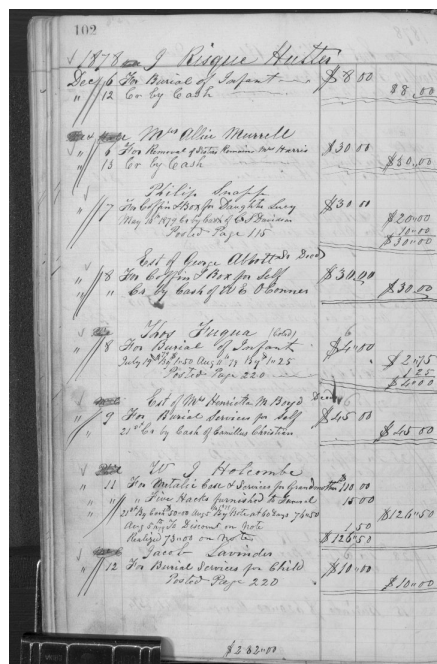 102
1878 J Risque Hutter
Dec 6 For Burial of Infant $8.00
" 12 Cr by Cash $8.00
Mrs Allie Murrell
6 For Removal of Sisters Remains Mrs Harris $30.00
" 13 Cr by Cash $30.00
Philip Snapp
" 7 For Coffin & Box for Daughter Lucy $30.00
May 1879 Cr by Cash of $20.00
Posted Page 115 10.00
$30.00
Est of George Abbott Decd
" 8 For Coffin & Box for Self $30.00
" " Cr by Cash of W E O'Conner $30.00
Thos Fuqua (Cold)
" 8 For Burial of Infant $4.00
July 19th By 1.50 Aug 11" 79 By 1.25 $2.75
Posted Page 220 1.25
$4.00
Est of Mrs Henrietta M Boyd Decd
" 9 For Burial Services for Self $45.00
" 21st Cr by Cash of Camillus Christian $45.00
W J Holcombe
" 11 For Metalic Case & Services for Grandmother $110.00
" " " Five Hacks furnished to Funeral 15.00
21st By Cash 50.00 Aug 5th By Note at 60 days 76.50 $126.50
Aug 5th To Discount on Note 1.50
Realized 75.00 on Note $126.50
Jacob Lavinder
" 12 For Burial Services for Child $10.00
Posted Page 220 $10.00
$282.00